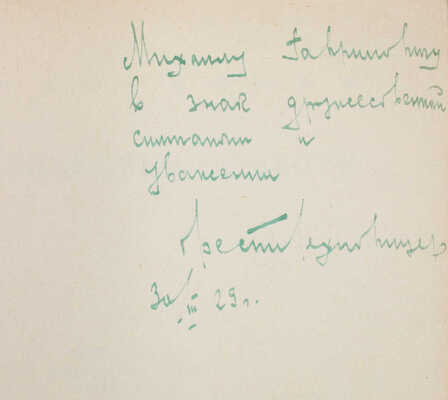 Михаилу Гавриловичу
в знак дружественной
симпатии и
уважения
Орест Цехновицер
30/III 29 г.